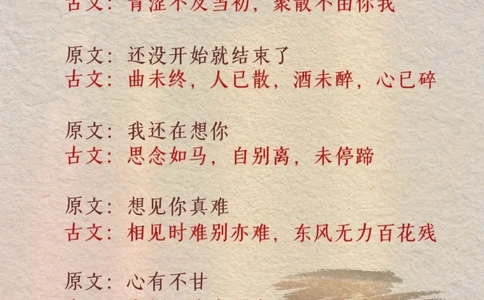 古文：青涩不及当初，聚散不由你我
原文：还没开始就结束了
古文：曲未终，人已散，酒未醉，心已碎
原文：我还在想你
古文：思念如马，自别离，未停蹄
原文：想见你真难
古文：相见时难别亦难，东风无力百花残
原文：心有不甘